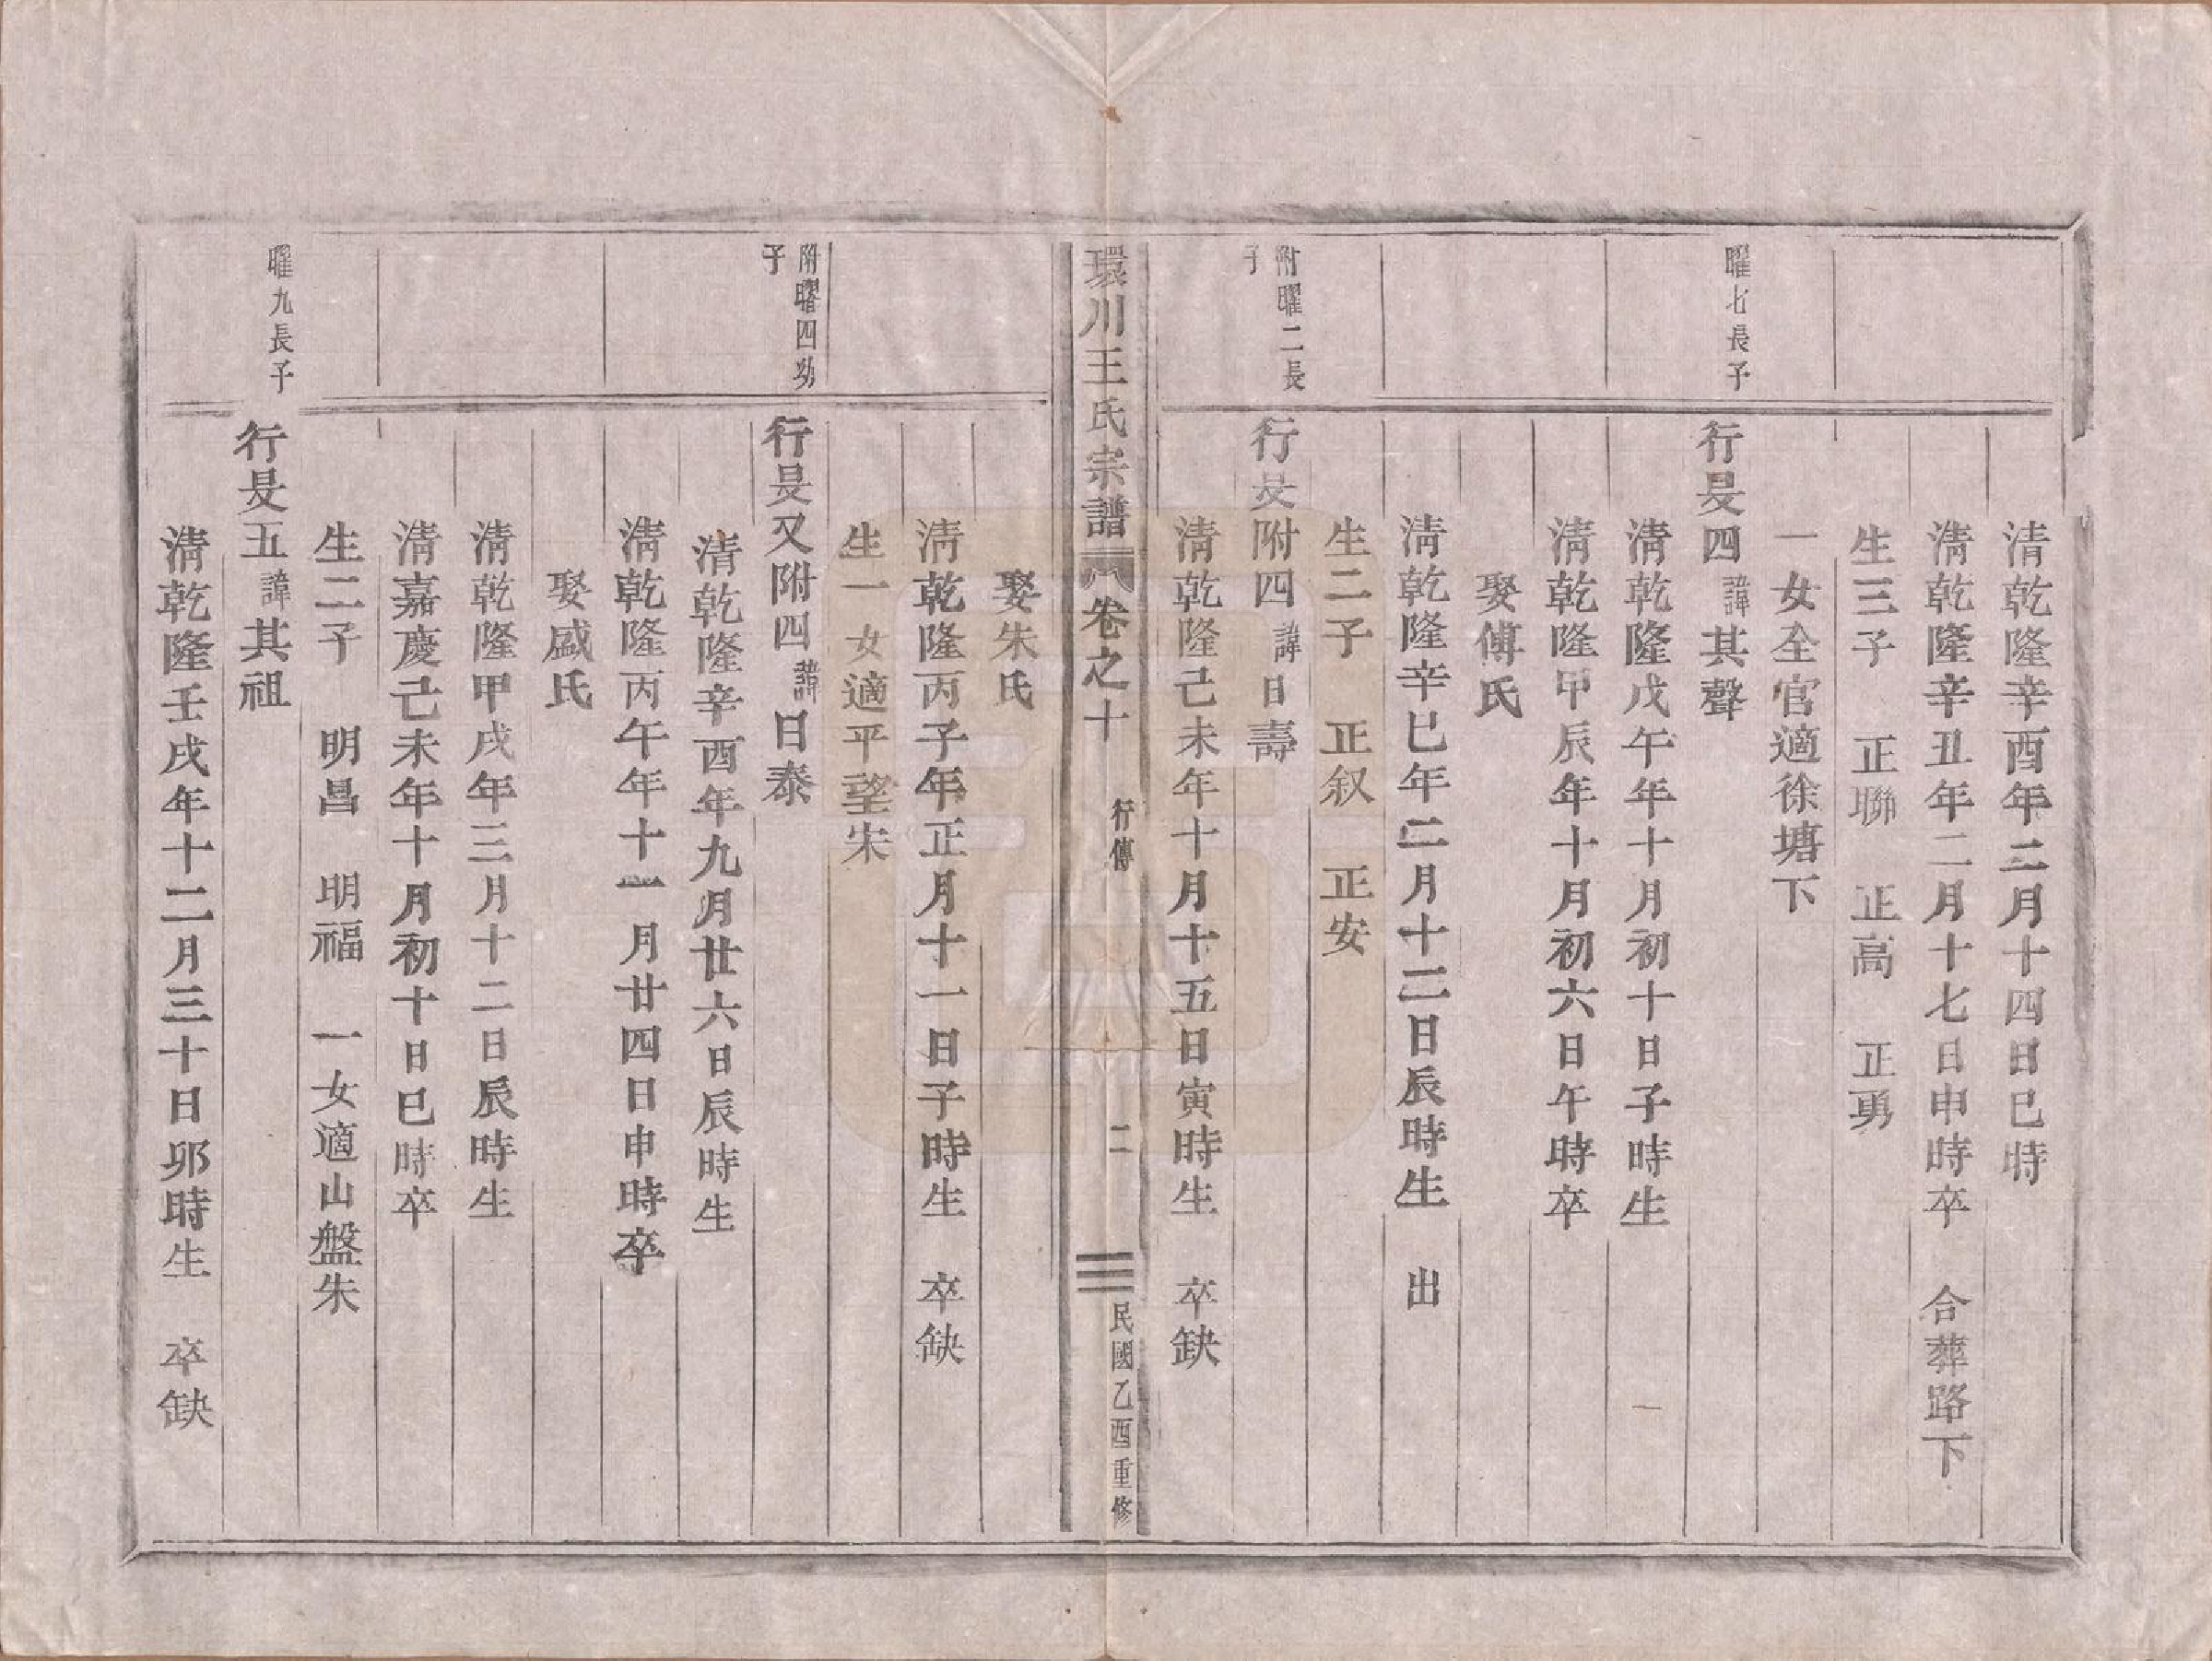 清乾隆辛酉年二月十四日巳時
清乾隆辛丑年二月十七日申時卒　合葬路下
生三子　正聯　正高　正勇
一女全官適徐塘下
曜七長子
行旻四諱其聲
清乾隆戊午年十月初十日子時生
清乾隆甲辰年十月初六日午時卒
娶傅氏
清乾隆辛巳年二月十二日辰時生　出
生二子　正叙　正安
附曜二長子
行旻附四諱日壽
清乾隆己未年十月十五日寅時生　卒缺
環川王氏宗譜　卷之十　行傳　二　民國乙酉重修
娶朱氏
清乾隆丙子年正月十一日子時生　卒缺
生一女適平望宋
附曜四幼子
行旻又附四諱日泰
清乾隆辛酉年九月廿六日辰時生
清乾隆丙午年十一月廿四日申時卒
娶盛氏
清乾隆甲戌年三月十二日辰時生
清嘉慶己未年十月初十日巳時卒
生二子　明昌　明福　一女適山盤朱
曜九長子
行旻五諱其祖
清乾隆壬戌年十二月三十日卯時生　卒缺